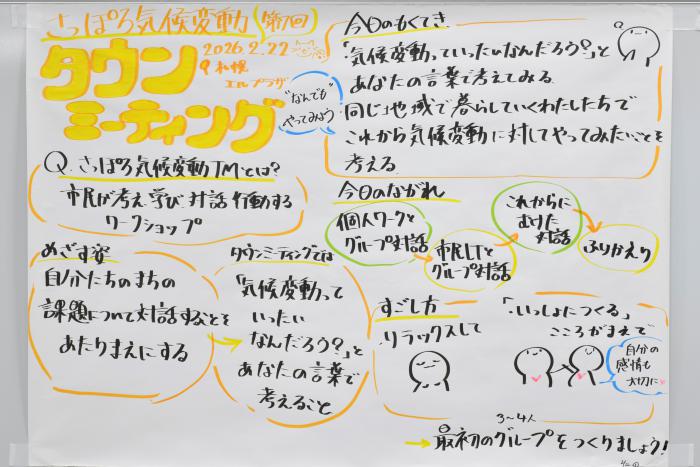 さっぽろ気候変動(第7回)
タウン
ミーティング
2026.2.22
札幌
エルプラザ
"なんでも"
やってみよう
今日のもくてき
「気候変動っていったいなんだろう?」と
あなたの言葉で考えてみる
同じ地域で暮らしていくわたしたちで
これから気候変動に対してやってみたいことを
考える
Q.さっぽろ気候変動TMとは?
市民が考え学び対話行動する
ワークショップ
今日のながれ
個人ワークと
グループ対話
市民LTと
グループ対話
これからに
むけた
対話
ふりかえり
めざす姿
自分たちのまちの
課題について対話することを
あたりまえにする
タウンミーティングでは
「気候変動って
いったい
なんだろう?」と
あなたの言葉で
考えること
すごし方
・リラックスして
「・いっしょにつくる」
こころがまえで
自分の
感情も
大切に
3~4人
→最初のグループをつくりましょう!